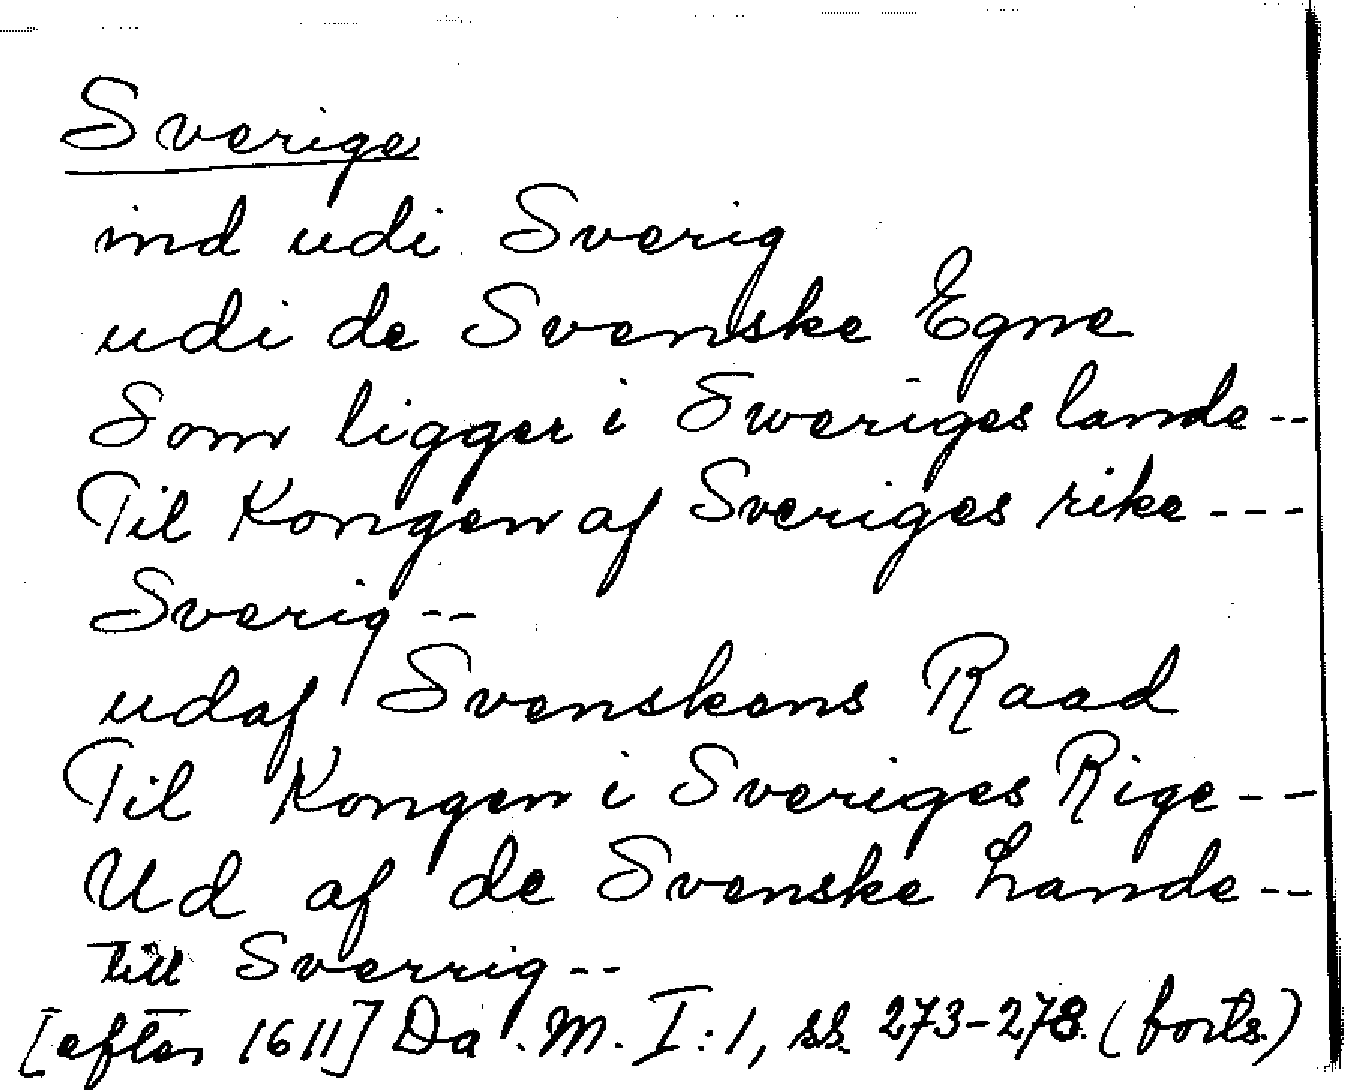 Sverige
ind udi Sverig
udi de Svenske Egne
Som ligger i Sweriges lande--
Til Kongen af Sveriges rike---
Sverig--
udaf Svenskens Raad
Til Kongen i Sveriges Rige--
Ud af de Svenske Lande--
till Sverrig--
[efter 1611] Da. M. I:1, ss. 273-278. (forts.)